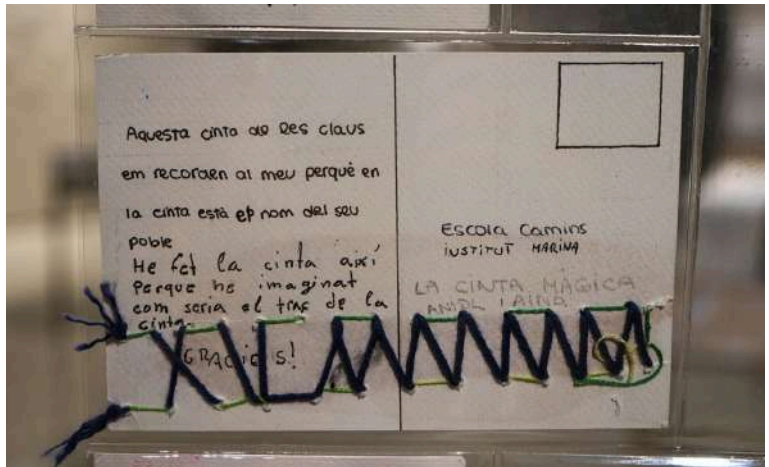 Aquesta cinta de les claus
em recorden al meu perquè en
la cinta està el nom del seu
poble
He fet la cinta així
Perque he imaginat
com seria el tros de la
cinta.
GRACIES!
Escola Camins
INSTITUT MARINA
LA CINTA MÀGICA
ANIOL I AINA